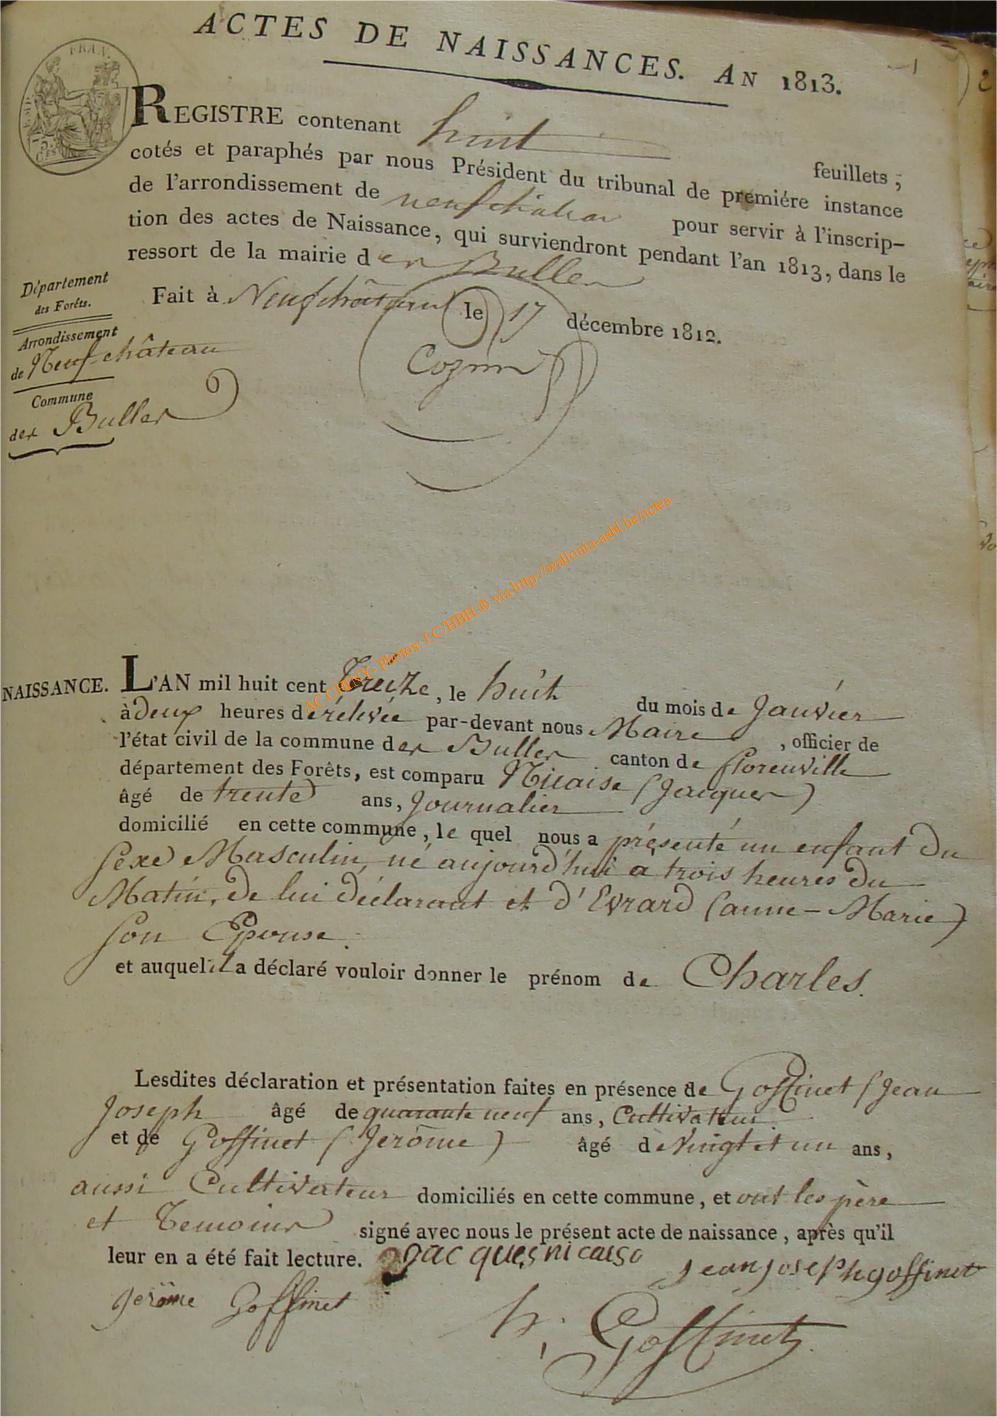 ACTES DE NAISSANCES. AN 1813.
1
2
FRAN.
REGISTRE contenant huit feuillets,
cotés et paraphés par nous Président du tribunal de premiére instance
de l'arrondissement de neufchateau pour servir à l'inscrip-
tion des actes de Naissance, qui surviendront pendant l'an 1813, dans le
ressort de la mairie des Bulles
Fait à Neufchâteau le 17 décembre 1812.
Département
des Forêts.
Arrondissement
de Neufchâteau
Commune
des Bulles
NAISSANCE. L'AN mil huit cent Treize, le huit du mois de Janvier
à deux heures de rélevée par-devant nous Maire, officier de
l'état civil de la commune des Bulles canton de florenville
département des Forêts, est comparu Nicaise (Jacques)
âgé de trente ans, Journalier
domicilié en cette commune, le quel nous a présenté un enfant du
sexe Masculin, né aujourd'hui a trois heures du
Matin, de lui déclarant et d'Evrard (anne-Marie)
son Epouse.
et auquel il a déclaré vouloir donner le prénom de Charles.
Lesdites déclaration et présentation faites en présence de Goffinet (Jean
Joseph âgé de quarante neuf ans, Cultivateur
et de Goffinet (Jerôme) âgé de vingt et un ans,
aussi Cultivateur domiciliés en cette commune, et ont les père
et Temoins signé avec nous le présent acte de naissance, après qu'il
leur en a été fait lecture. Jacques nicaise Jean joseph goffinet
gerôme Goffinet
h. Goffinet